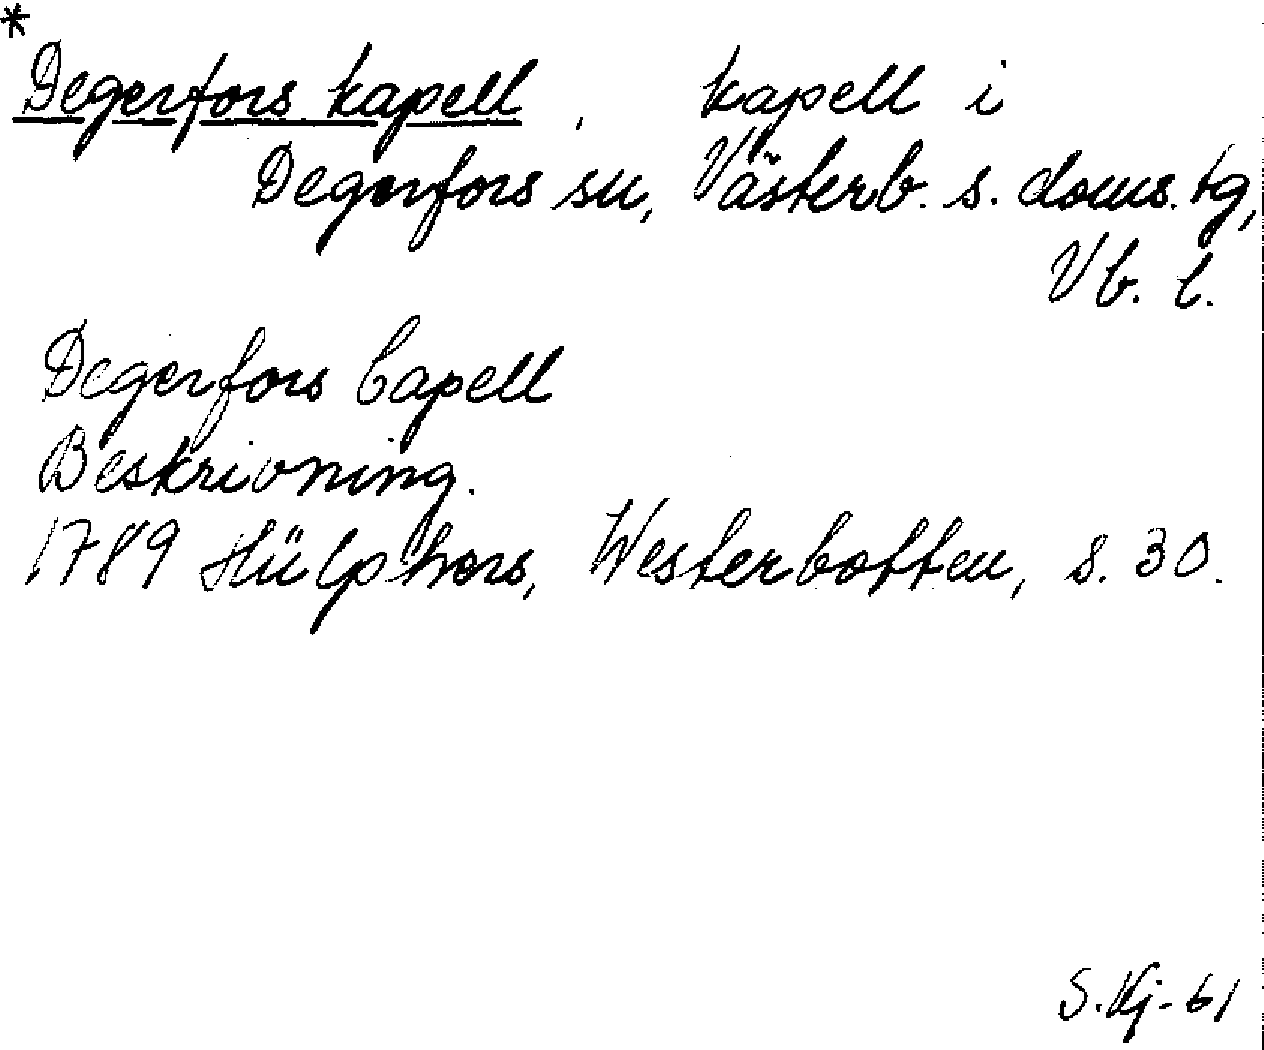 *
Degerfors kapell, kapell i
Degerfors sn, Västerb. s. doms. tg,
Vb. l.
Degerfors Capell
Beskrivning.
1789 Hülphers, Westerbotten, s. 30.
S. Kj-61